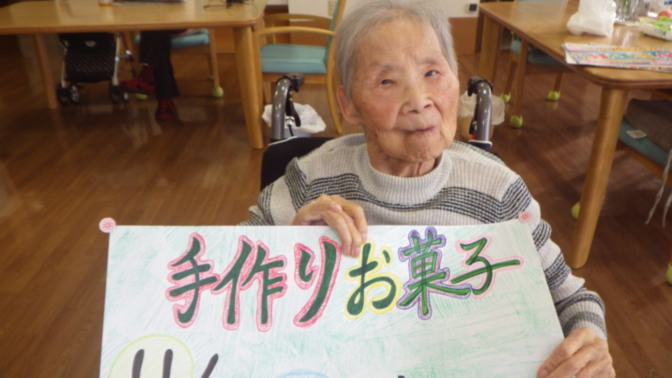 手作りお菓子